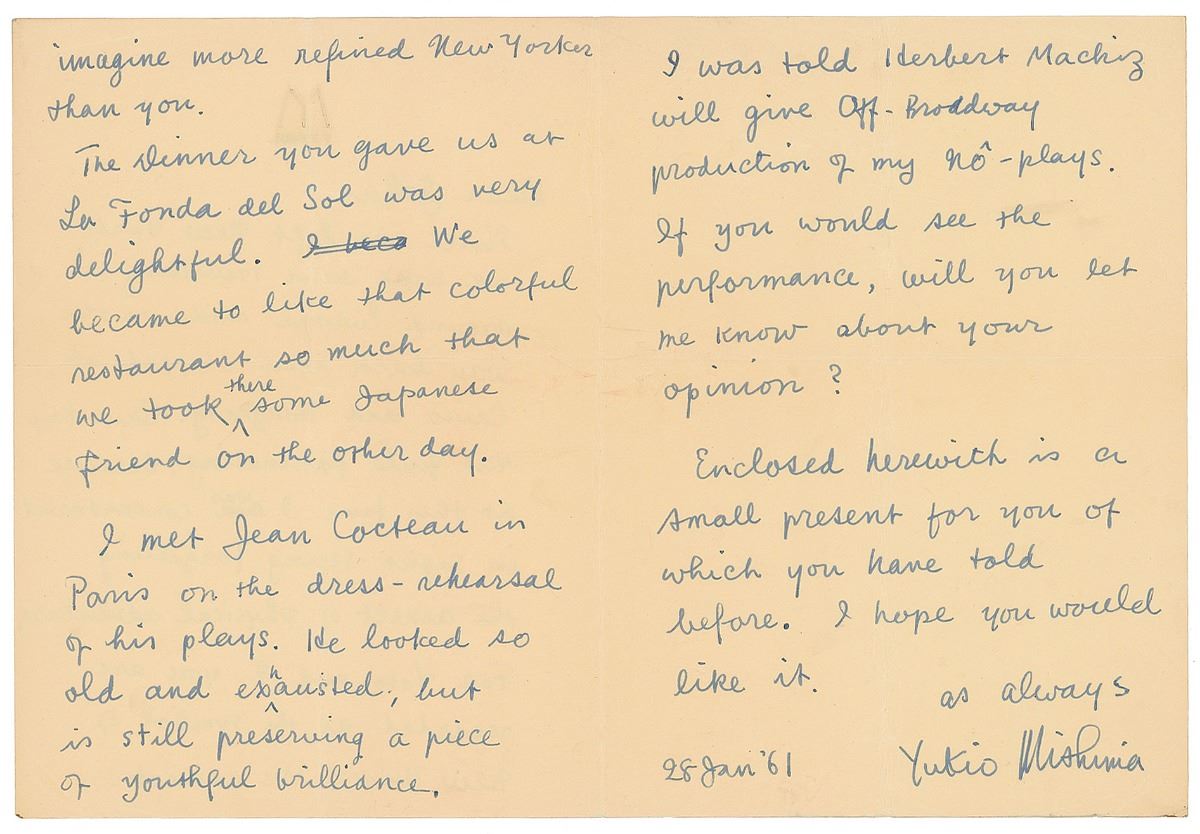 imagine more refined New Yorker
than you.
The Dinner you gave us at
La Fonda del Sol was very
delightful. I beca We
became to like that colorful
restaurant so much that
we took there some Japanese
friend on the other day.
I met Jean Cocteau in
Paris on the dress-rehearsal
of his plays. He looked so
old and exhausted, but
is still preserving a piece
of youthful brilliance.
I was told Herbert Machiz
will give Off-Broadway
production of my Nô-plays.
If you would see the
performance, will you let
me know about your
opinion?
Enclosed herewith is a
small present for you of
which you have told
before. I hope you would
like it.
as always
28 Jan '61 Yukio Mishima